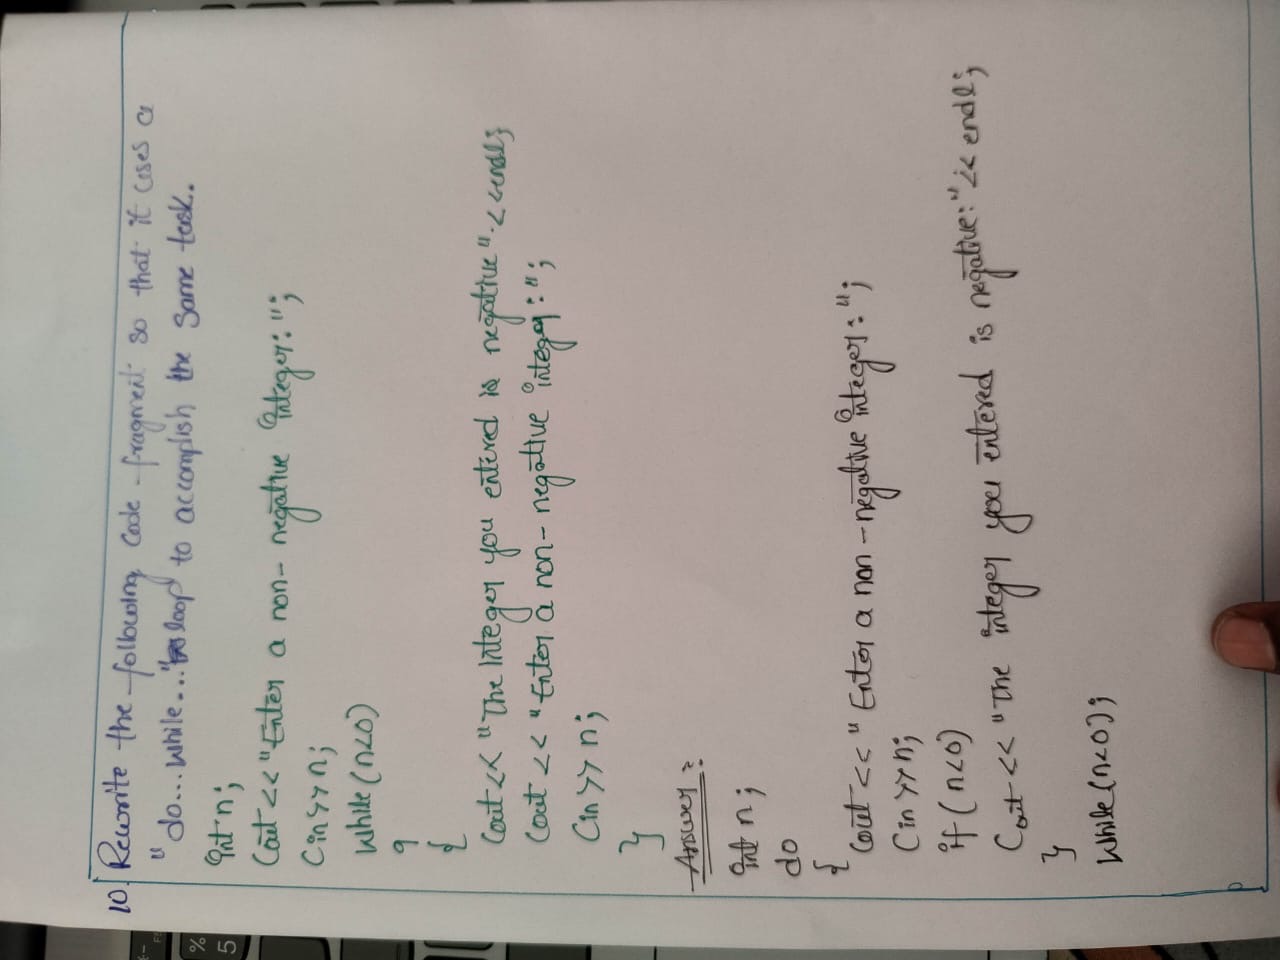 10. Rewrite the following code fragment so that it uses a
"do...while..." loop to accomplish the same task.
int n;
Cout << "Enter a non-negative integer:";
Cin >> n;
While (n<0)
{
Cout << "The Integer you entered is negative" << endl;
Cout << "Enter a non-negative integer:";
Cin >> n;
}
Answer:
int n;
do
{
Cout << "Enter a non-negative integer:";
Cin >> n;
if (n<0)
Cout << "The integer you entered is negative:" << endl;
}
While (n<0);
%
5